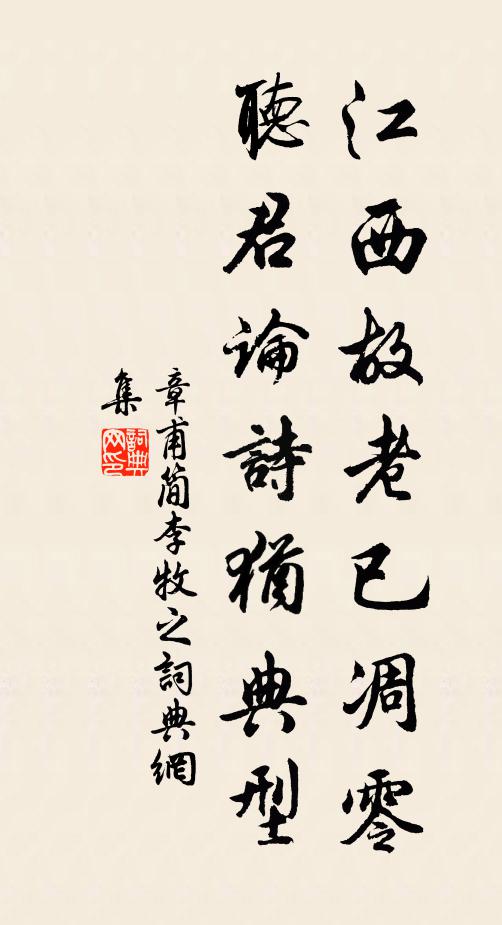 江西故老已凋零
聽君論詩猶典型
章甫简李牧之詞典網
集
詞典
网印